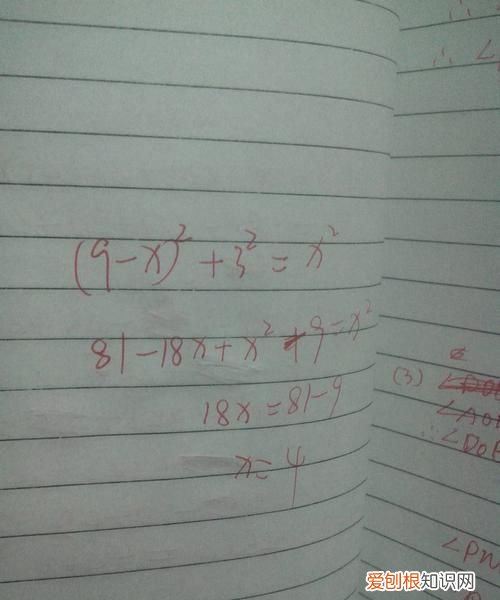 (9-x)²+3²=x²
81-18x+x²+9=x²
18x=81-9
x=4
∴
∴ ∠
(3)
∴∠DOF
∠PN
爱刨根知识网